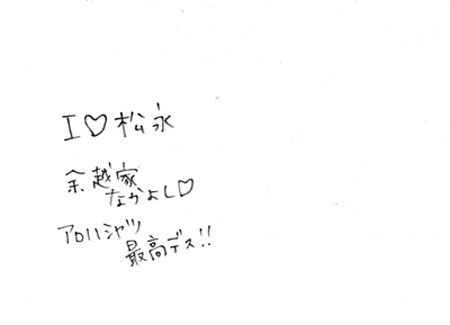 I♡松永
余越家
なかよし♡
アロハシャツ
最高デス!!